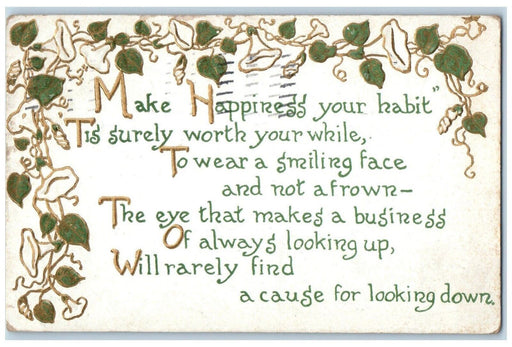 Make Happiness your habit"
Tis surely worth your while,
To wear a smiling face
and not a frown—
The eye that makes a business
Of always looking up,
Will rarely find
a cause for looking down.